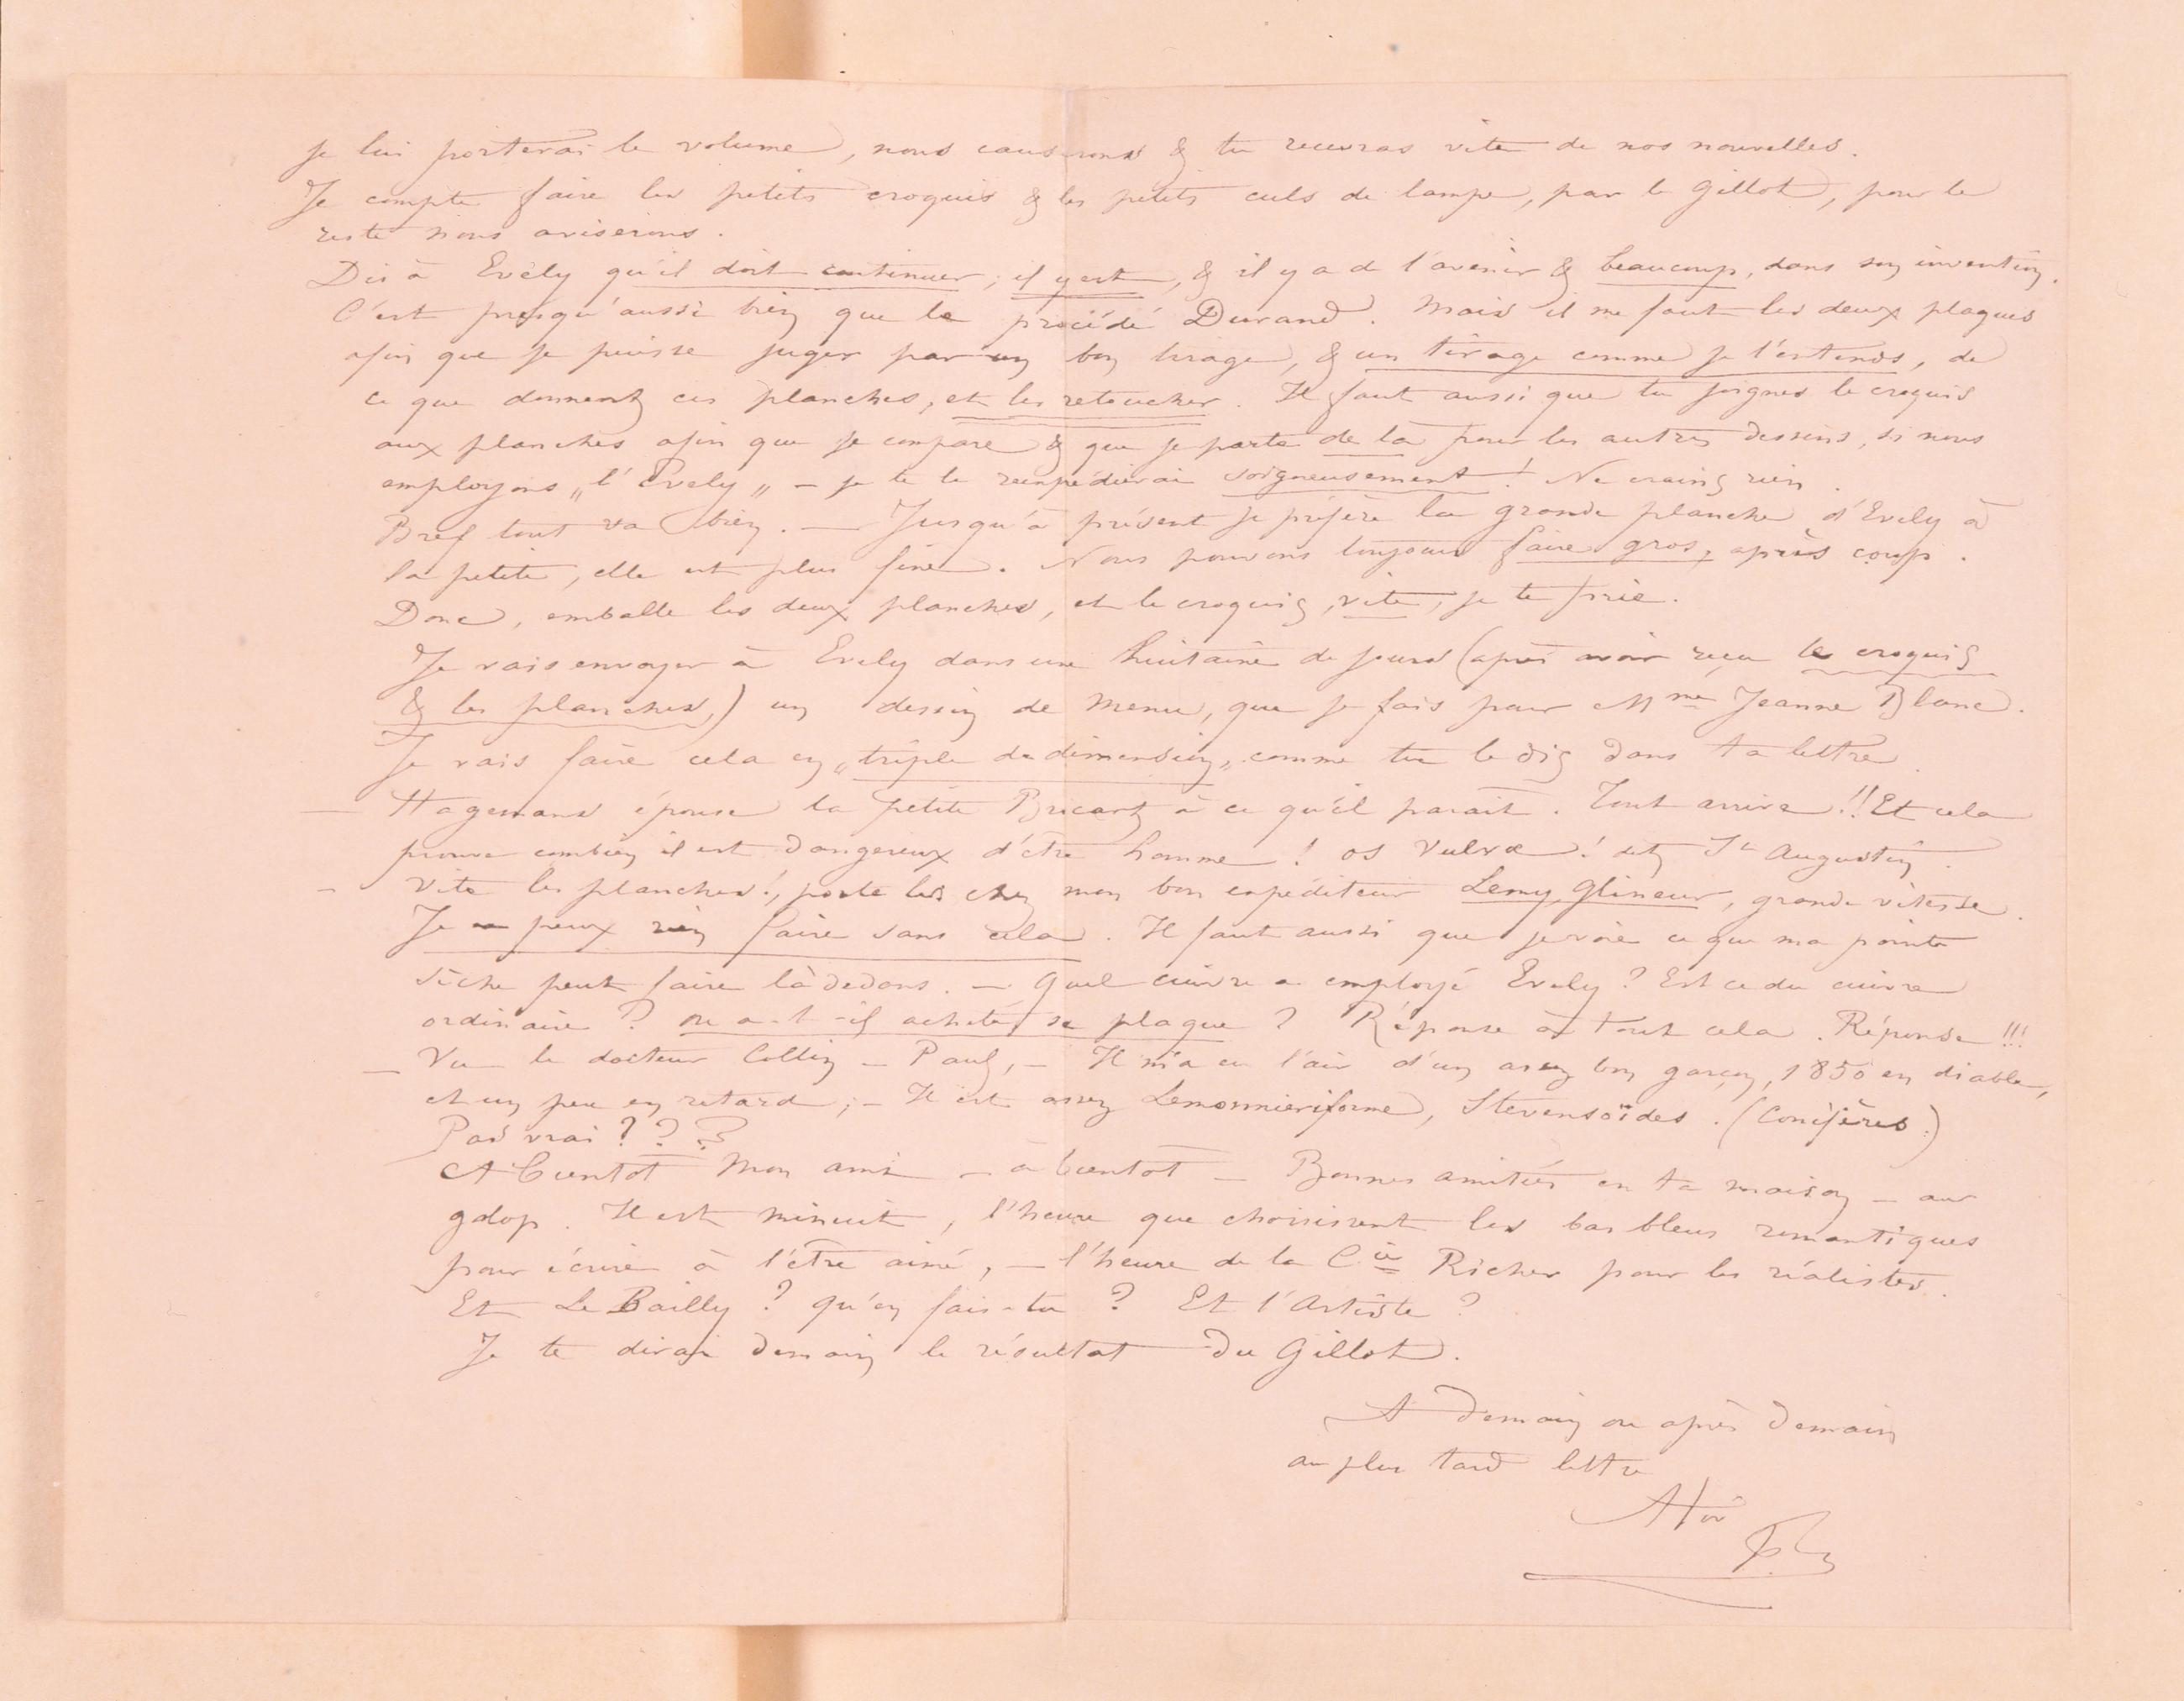 je lui porterai le volume, nous causerons & tu recevras vite de nos nouvelles.
Je compte faire les petits croquis & les petits culs de lampe, par le Gillot, pour le
reste nous aviserons.
Dis à Evély qu'il doit continuer, il y est, & il y a de l'avenir & beaucoup, dans son invention.
C'est presqu'aussi bien que le procédé Durand. Mais il me faut les deux plaques
afin que je puisse juger par un bon tirage, & un tirage comme je l'entends, de
ce que donnent ces planches, et les retoucher. Il faut aussi que tu joignes le croquis
aux planches afin que je compare & que je parte de là pour les autres dessins, si nous
employons „l'Evely„ – je te le réexpédierai soigneusement! Ne crains rien.
Bref tout va bien. — Jusqu'à présent je préfère la grande planche d'Evely à
la petite, elle est plus fine. Nous pouvons toujours faire gros, après coup.
Donc, emballe les deux planches, et le croquis, vite, je te prie.
Je vais envoyer à Evely dans une huitaine de jours (après avoir reçu le croquis
& les planches,) un dessin de menu, que je fais pour Mme Jeanne Blanc.
Je vais faire cela en „triple de dimension„ comme tu le dis dans ta lettre.
— Hagemans épouse la petite Bricart à ce qu'il parait. Tout arrive!! Et cela
prouve combien il est dangereux d'être homme! os vulvæ! dit St Augustin.
– Vite les planches!, porte les chez mon bon expéditeur Lemy, Glineur, grande vitesse.
Je ne peux rien faire sans cela. Il faut aussi que je voie ce que ma pointe
sèche peut faire làdedans. — Quel cuivre a employé Evely? Est ce du cuivre
ordinaire? ou a-t-il acheté sa plaque? Réponse à tout cela. Réponse!!!
— Vu le docteur Collin – Paul, – Il m'a eu l'air d'un assez bon garçon, 1850 en diable,
et un peu en retard; – Il est assez Lemonnieriforme, Stevensoïdes. (Conifères.)
Pas vrai???
A bientot mon ami – à bientot – Bonnes amitiés en ta maison – au
galop. Il est minuit, l'heure que choisissent les bas bleus romantiques
pour écrire à l'être aimé, – l'heure de la Cie Richer pour les réalistes.
Et Le Bailly? qu'en fais-tu? Et l'Artiste?
Je te dirai demain le résultat du Gillot.
A demain ou après demain
au plus tard lettre
A toi